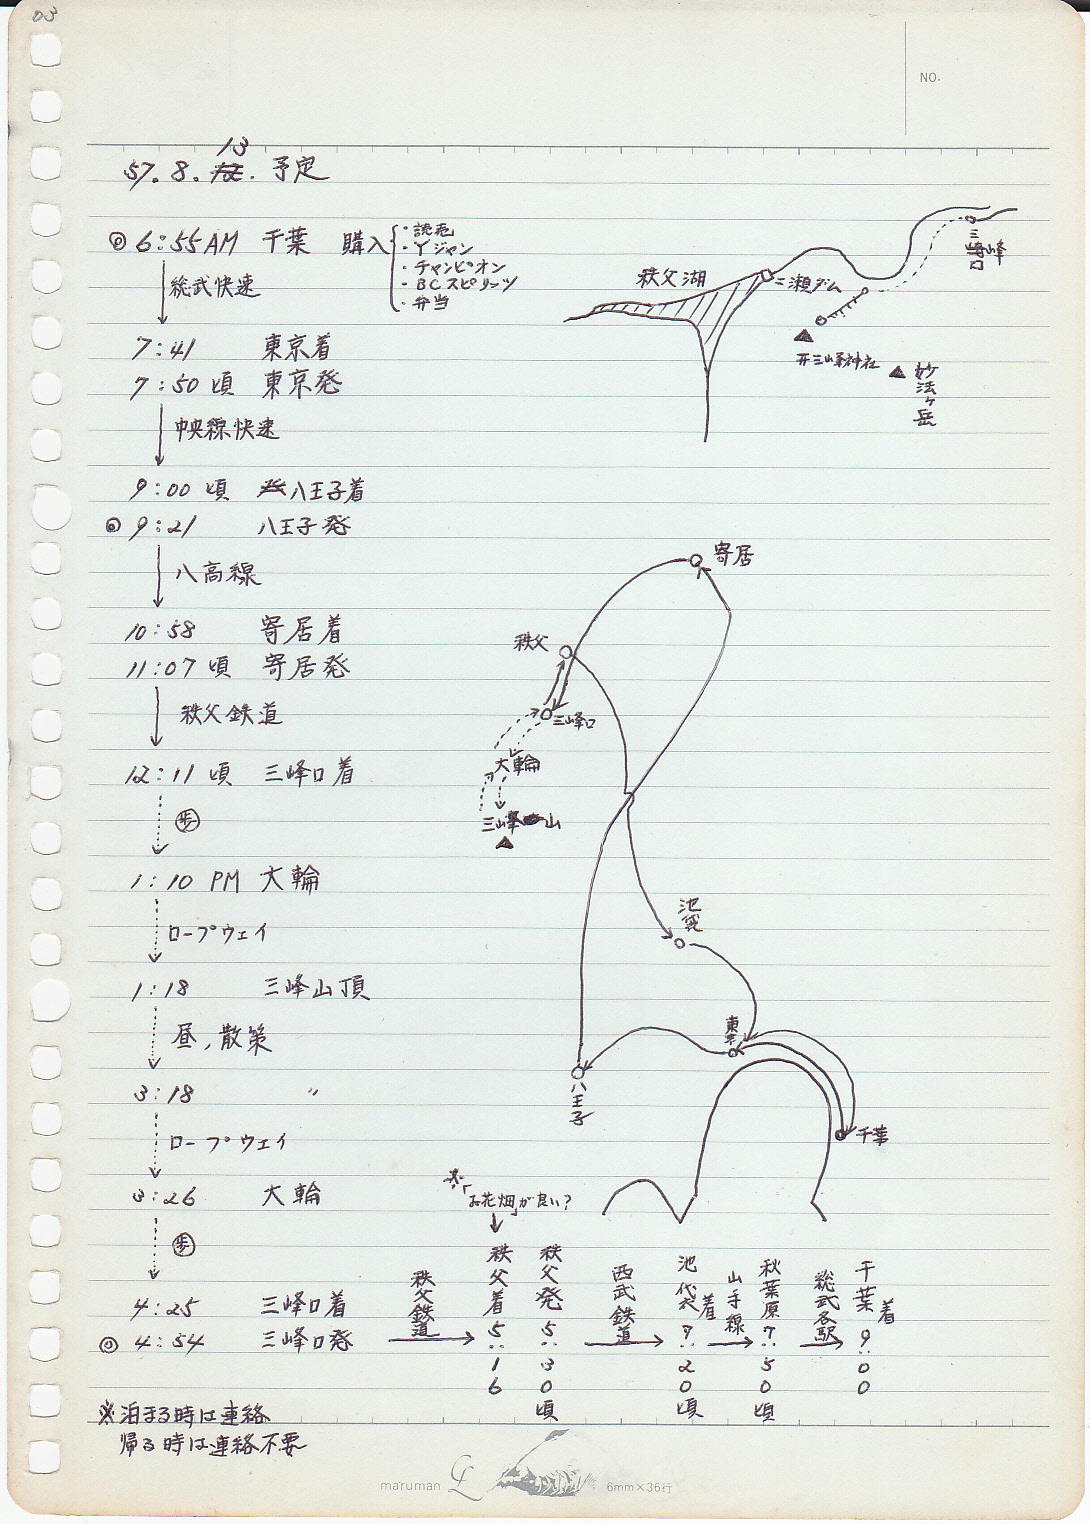 03
NO.
57.8.13. 予定
◎ 6:55AM 千葉 購入
・読売
・Yジャン
・チャンピオン
・BCスピリッツ
・弁当
総武快速
7:41 東京着
7:50頃 東京発
中央線快速
9:00頃 八王子着
◎ 9:21 八王子発
八高線
10:58 寄居着
11:07頃 寄居発
秩父鉄道
12:11頃 三峰口着
歩
1:10 PM 大輪
ロープウェイ
1:18 三峰山頂
昼,散策
3:18 〃
ロープウェイ
3:26 大輪
歩
4:25 三峰口着
◎ 4:54 三峰口発
秩父鉄道
※「お花畑」が良い?
秩父着 5:16
秩父発 5:30頃
西武鉄道
池袋着 7:20頃
山手線
秋葉原 7:50頃
総武各駅
千葉着 9:00
※泊まる時は連絡
帰る時は連絡不要
秩父湖
二瀬ダム
三峰口
三峰神社
妙法ヶ岳
寄居
秩父
三峰口
大輪
三峰山
池袋
東京
八王子
千葉
maruman
6mm×36行